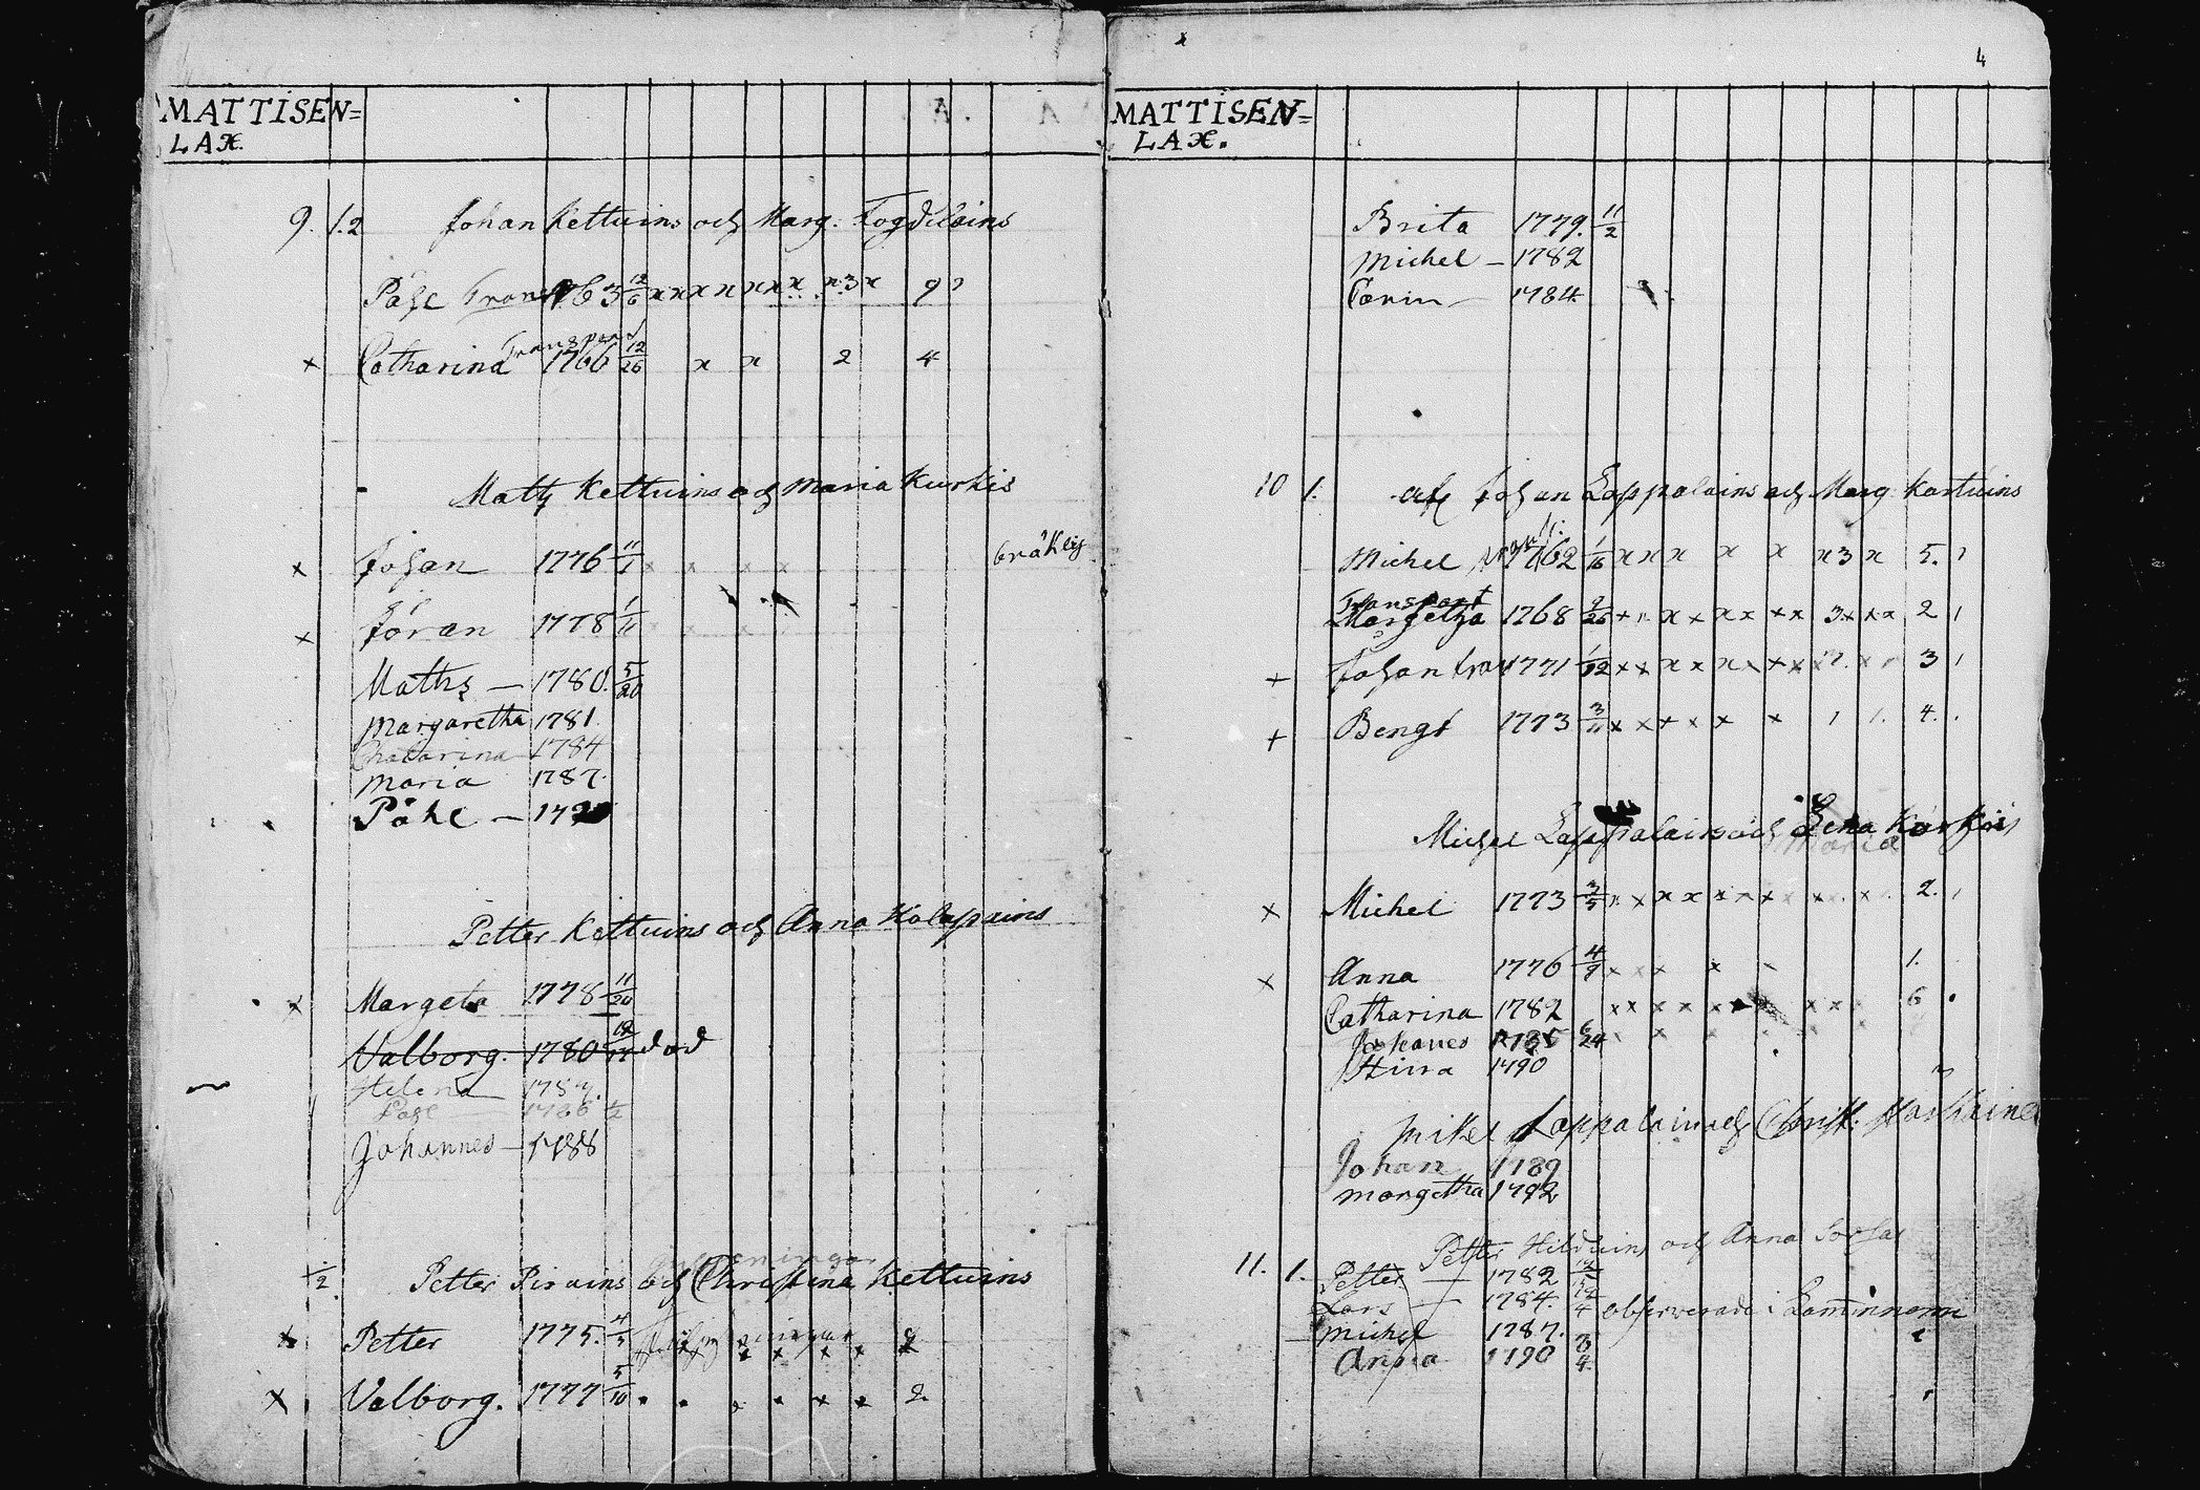 MATTISEN=
LAX.
9. 1.2 Johan Kettuins och Marg: Togdilains
Påhl Transp 1763 12/6 x x x x x x x x 3 x 9
x Catharina Transport 1766 12/26 x x 2 4
Matts Kettuins och Maria Kurkis
x Johan 1776 11/1 x x x x bräklig
x Jöran 1778 1/11
Maths — 1780. 5/20
Margaretha 1781.
Chatarina 1784
Maria 1787.
Påhl —
Petter Kettuins och Anna Holapains
x Margeta 1778 11/20
Valborg. 1780 död
Helena
Påhl 1786 1/2
Johannes — 1788
1/2. Petter Pirains och Christina Kettuins
x Petter 1775. 4/3 x x x x
x Valborg. 1777 5/10 x x 2.
4
MATTISEN=
LAX.
Brita 1779. 11/2
Michel — 1782
Carin — 1784.
10 1. Johan Lappalains och Marg Kartuins
Michel 1762 1/16 x x x x x x 3 x 5. 1
Transport
Margetha 1768 9/26 + x x x x x x x 3 x x x 2 1
+ Johan tran 1771 1/12 x x x x x x x 3 1
+ Bengt 1773 3/11 x x x x x x 1 1. 4.
Michel Lappalains och Lena Kurkis
Maria
x Michel 1773 3/5 x x x x x x x x x 2. 1
x Anna 1776 4/9 x x x x 1.
Catharina 1782 x x x x x x x 6
Johanes 6/24
Stina 1790
Mikel Lappalain och Christ:
Johan 1789
Margetha 1792
11. 1. Petter Hilduins och Anna
Petter — 1782
Lars — 1784. 12/4 observerade i
Michel 1787.
Anna 1790 3/4.